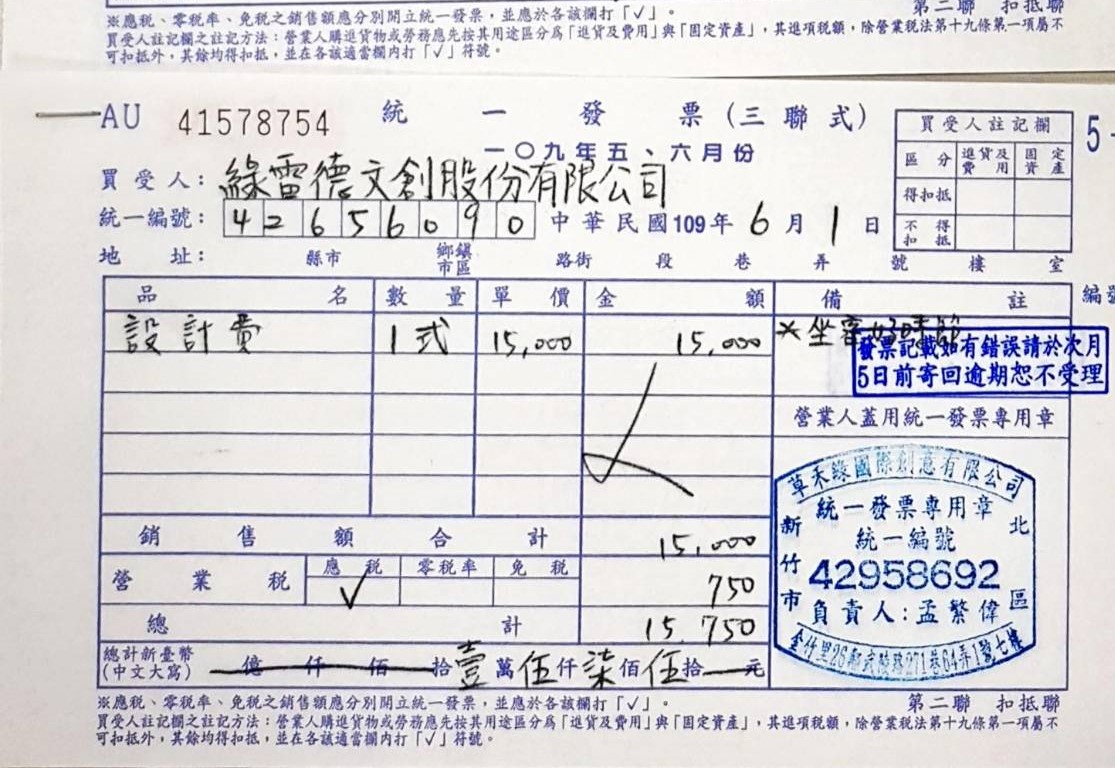 第二聯 扣抵聯
※應稅、零稅率、免稅之銷售額應分別開立統一發票，並應於各該欄打「√」。
買受人註記欄之註記方法：營業人購進貨物或勞務應先按其用途區分為「進貨及費用」與「固定資產」，其進項稅額，除營業稅法第十九條第一項屬不
可扣抵外，其餘均得扣抵，並在各該適當欄內打「√」符號。
AU 41578754 統一發票(三聯式)
一〇九年五、六月份
買受人註記欄
區分 進貨及費用 固定資產
得扣抵
不得扣抵
買受人：綠雷德文創股份有限公司
統一編號：42656090 中華民國109年6月1日
地址： 縣市 鄉鎮市區 路街 段 巷 弄 號 樓 室
品名 數量 單價 金額 備註
設計費 1式 15,000 15,000
發票記載如有錯誤請於次月
5日前寄回逾期恕不受理
營業人蓋用統一發票專用章
銷售額合計 15,000
營業稅 應稅 零稅率 免稅 750
√
總計 15,750
總計新臺幣
(中文大寫) 億仟佰拾壹萬伍仟柒佰伍拾元
草禾緣國際創意有限公司
統一發票專用章
統一編號
42958692
負責人：孟繁偉
新竹市
北區
金竹里26鄰武陵路271巷64弄1號七樓
※應稅、零稅率、免稅之銷售額應分別開立統一發票，並應於各該欄打「√」。
第二聯 扣抵聯
買受人註記欄之註記方法：營業人購進貨物或勞務應先按其用途區分為「進貨及費用」與「固定資產」，其進項稅額，除營業稅法第十九條第一項屬不
可扣抵外，其餘均得扣抵，並在各該適當欄內打「√」符號。